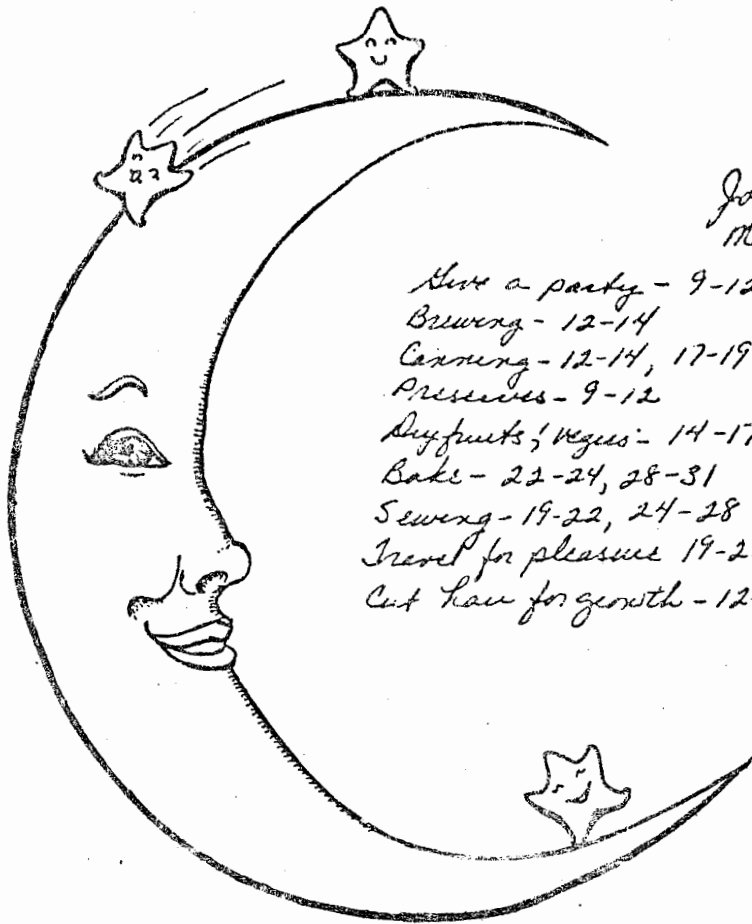 Give a party - 9-12
Brewing - 12-14
Canning - 12-14, 17-19
Preserves - 9-12
Dry fruits, vegies - 14-17
Bake - 22-24, 28-31
Sewing - 19-22, 24-28
Travel for pleasure 19-2
Cut hair for growth - 12-